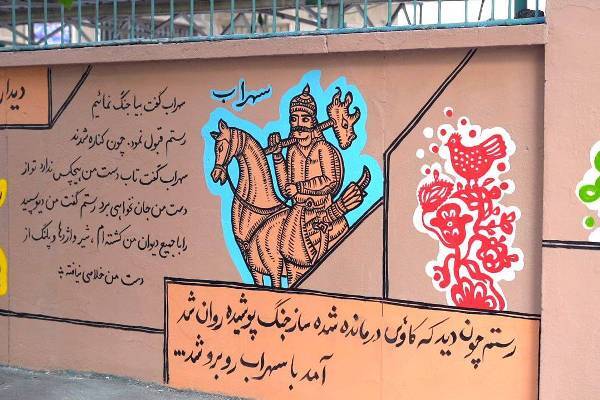 دیدار
سهراب
سهراب گفت بیا جنگ نمائیم
رستم قبول نمود. چون کناره شدند
سهراب گفت تاب دست من هیچکس ندارد تو از
دست من جان نخواهی برد رستم گفت من دیو سپید
را با جمیع دیوان من کشته‌ام، شیر و اژدها و پلنگ از
دست من خلاصی نیافته
رستم چون دید که کاوس درمانده شده ساز جنگ پوشیده روان شد
آمد با سهراب روبرو شد...